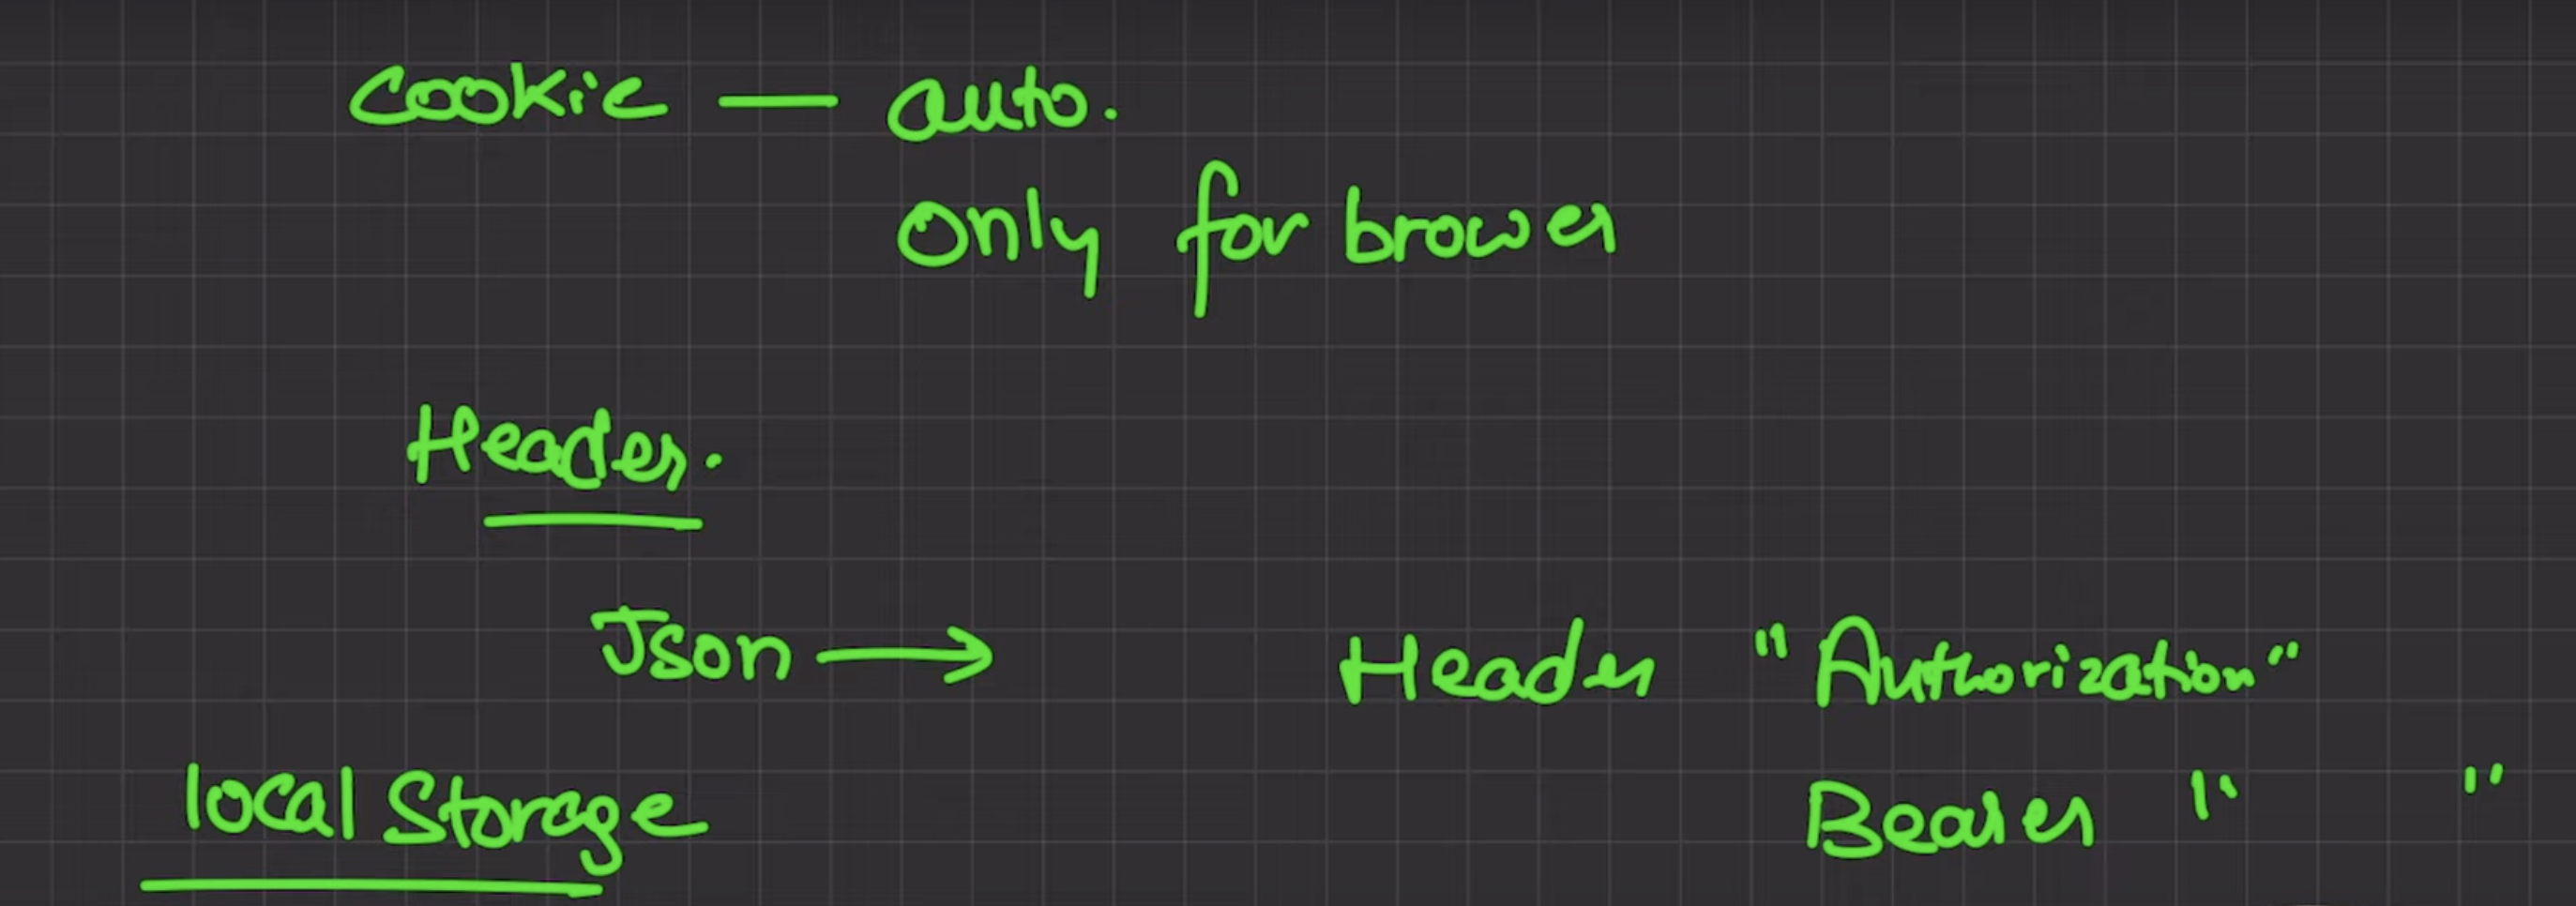 Cookie — auto.
Only for brower
Header.
Json → Header "Authorization"
local Storage Bearer " "